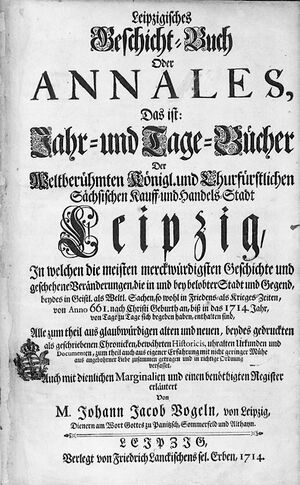 Leipzigisches
Geschicht-Buch
Oder
ANNALES,
Das ist:
Jahr- und Tage-Bücher
Der
Weltberühmten Königl. und Churfürstlichen
Sächsischen Kauff- und Handels-Stadt
Leipzig,
In welchen die meisten merckwürdigsten Geschichte und
geschehene Veränderungen, die in und bey belobter Stadt und Gegend,
beydes in Geistl. als Weltl. Sachen, so wohl in Friedens- als Krieges-Zeiten,
von Anno 661. nach Christi Geburth an, biß in das 1714. Jahr,
von Tage zu Tage sich begeben haben, enthalten sind,
Alle zum theil aus glaubwürdigen alten und neuen, beydes gedruckten
als geschriebenen Chronicken, bewährten Historicis, uhralten Urkunden und
Documenten, zum theil auch aus eigener Erfahrung mit nicht geringer Mühe
aus angebohrner Liebe zusammen getragen und in richtige Ordnung
verfasset.
Auch mit dienlichen Marginalien und einen benöthigten Register
erläutert
Von
M. Johann Jacob Vogeln, von Leipzig,
Dienern am Wort Gottes zu Panitzsch, Sommerfeld und Althayn.
LEIPZIG,
Verlegt von Friedrich Lanckischens sel. Erben, 1714.